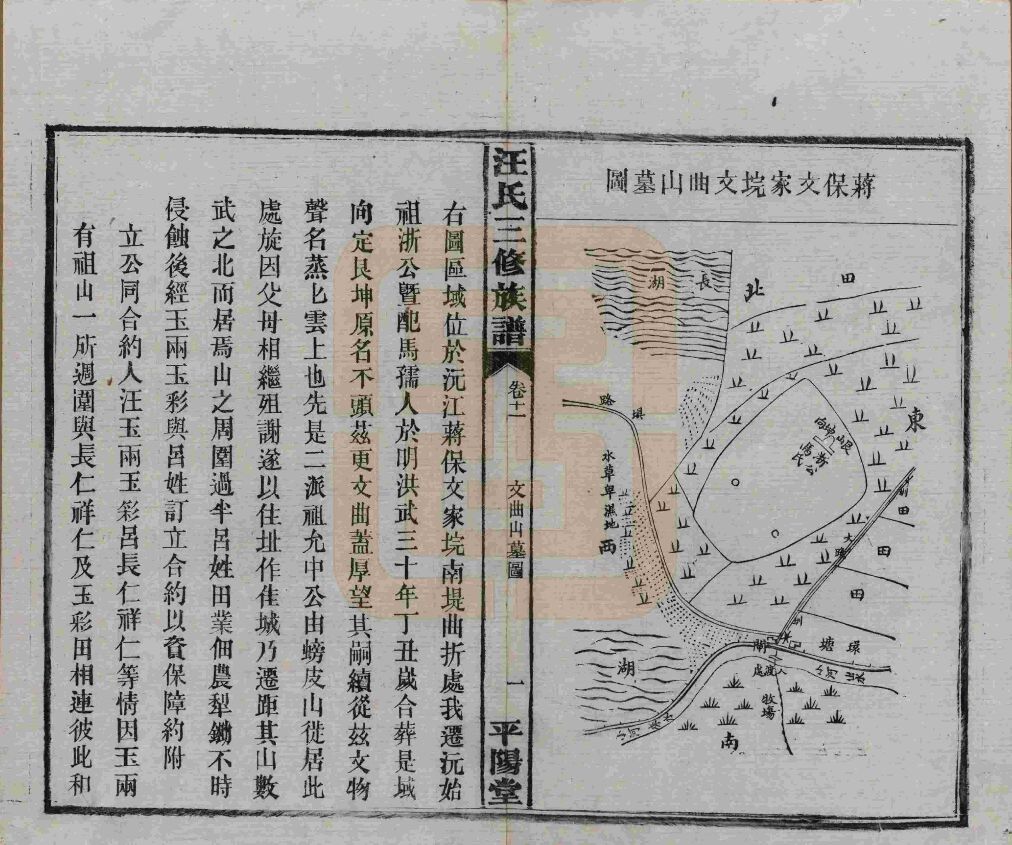 蔣保文家垸文曲山墓圖
長
湖
北
田
東
艮山坤向
浙公
馮氏
垻
路
水草卑濕地
西
大
田
田
田
環
塘
湖
牧場
南
汪氏三修族譜
卷十一
文曲山墓圖
一
平陽堂
右圖區域位於沅江蔣保文家垸南堤曲折處我遷沅始
祖浙公暨配馬孺人於明洪武三十年丁丑嵗合葬是域
向定艮坤原名不頭茲更文曲蓋厚望其嗣續從茲文物
聲名蒸匕雲上也先是二派祖允中公由螃皮山徙居此
處旋因父母相繼殂謝遂以住址作佳城乃遷距其山數
武之北而居焉山之周圍過半呂姓田業佃農犁鋤不時
侵蝕後經玉兩玉彩與呂姓訂立合約以資保障約附
立公同合約人汪玉兩玉彩呂長仁祥仁等情因玉兩
有祖山一所週圍與長仁祥仁及玉彩田相連彼此和